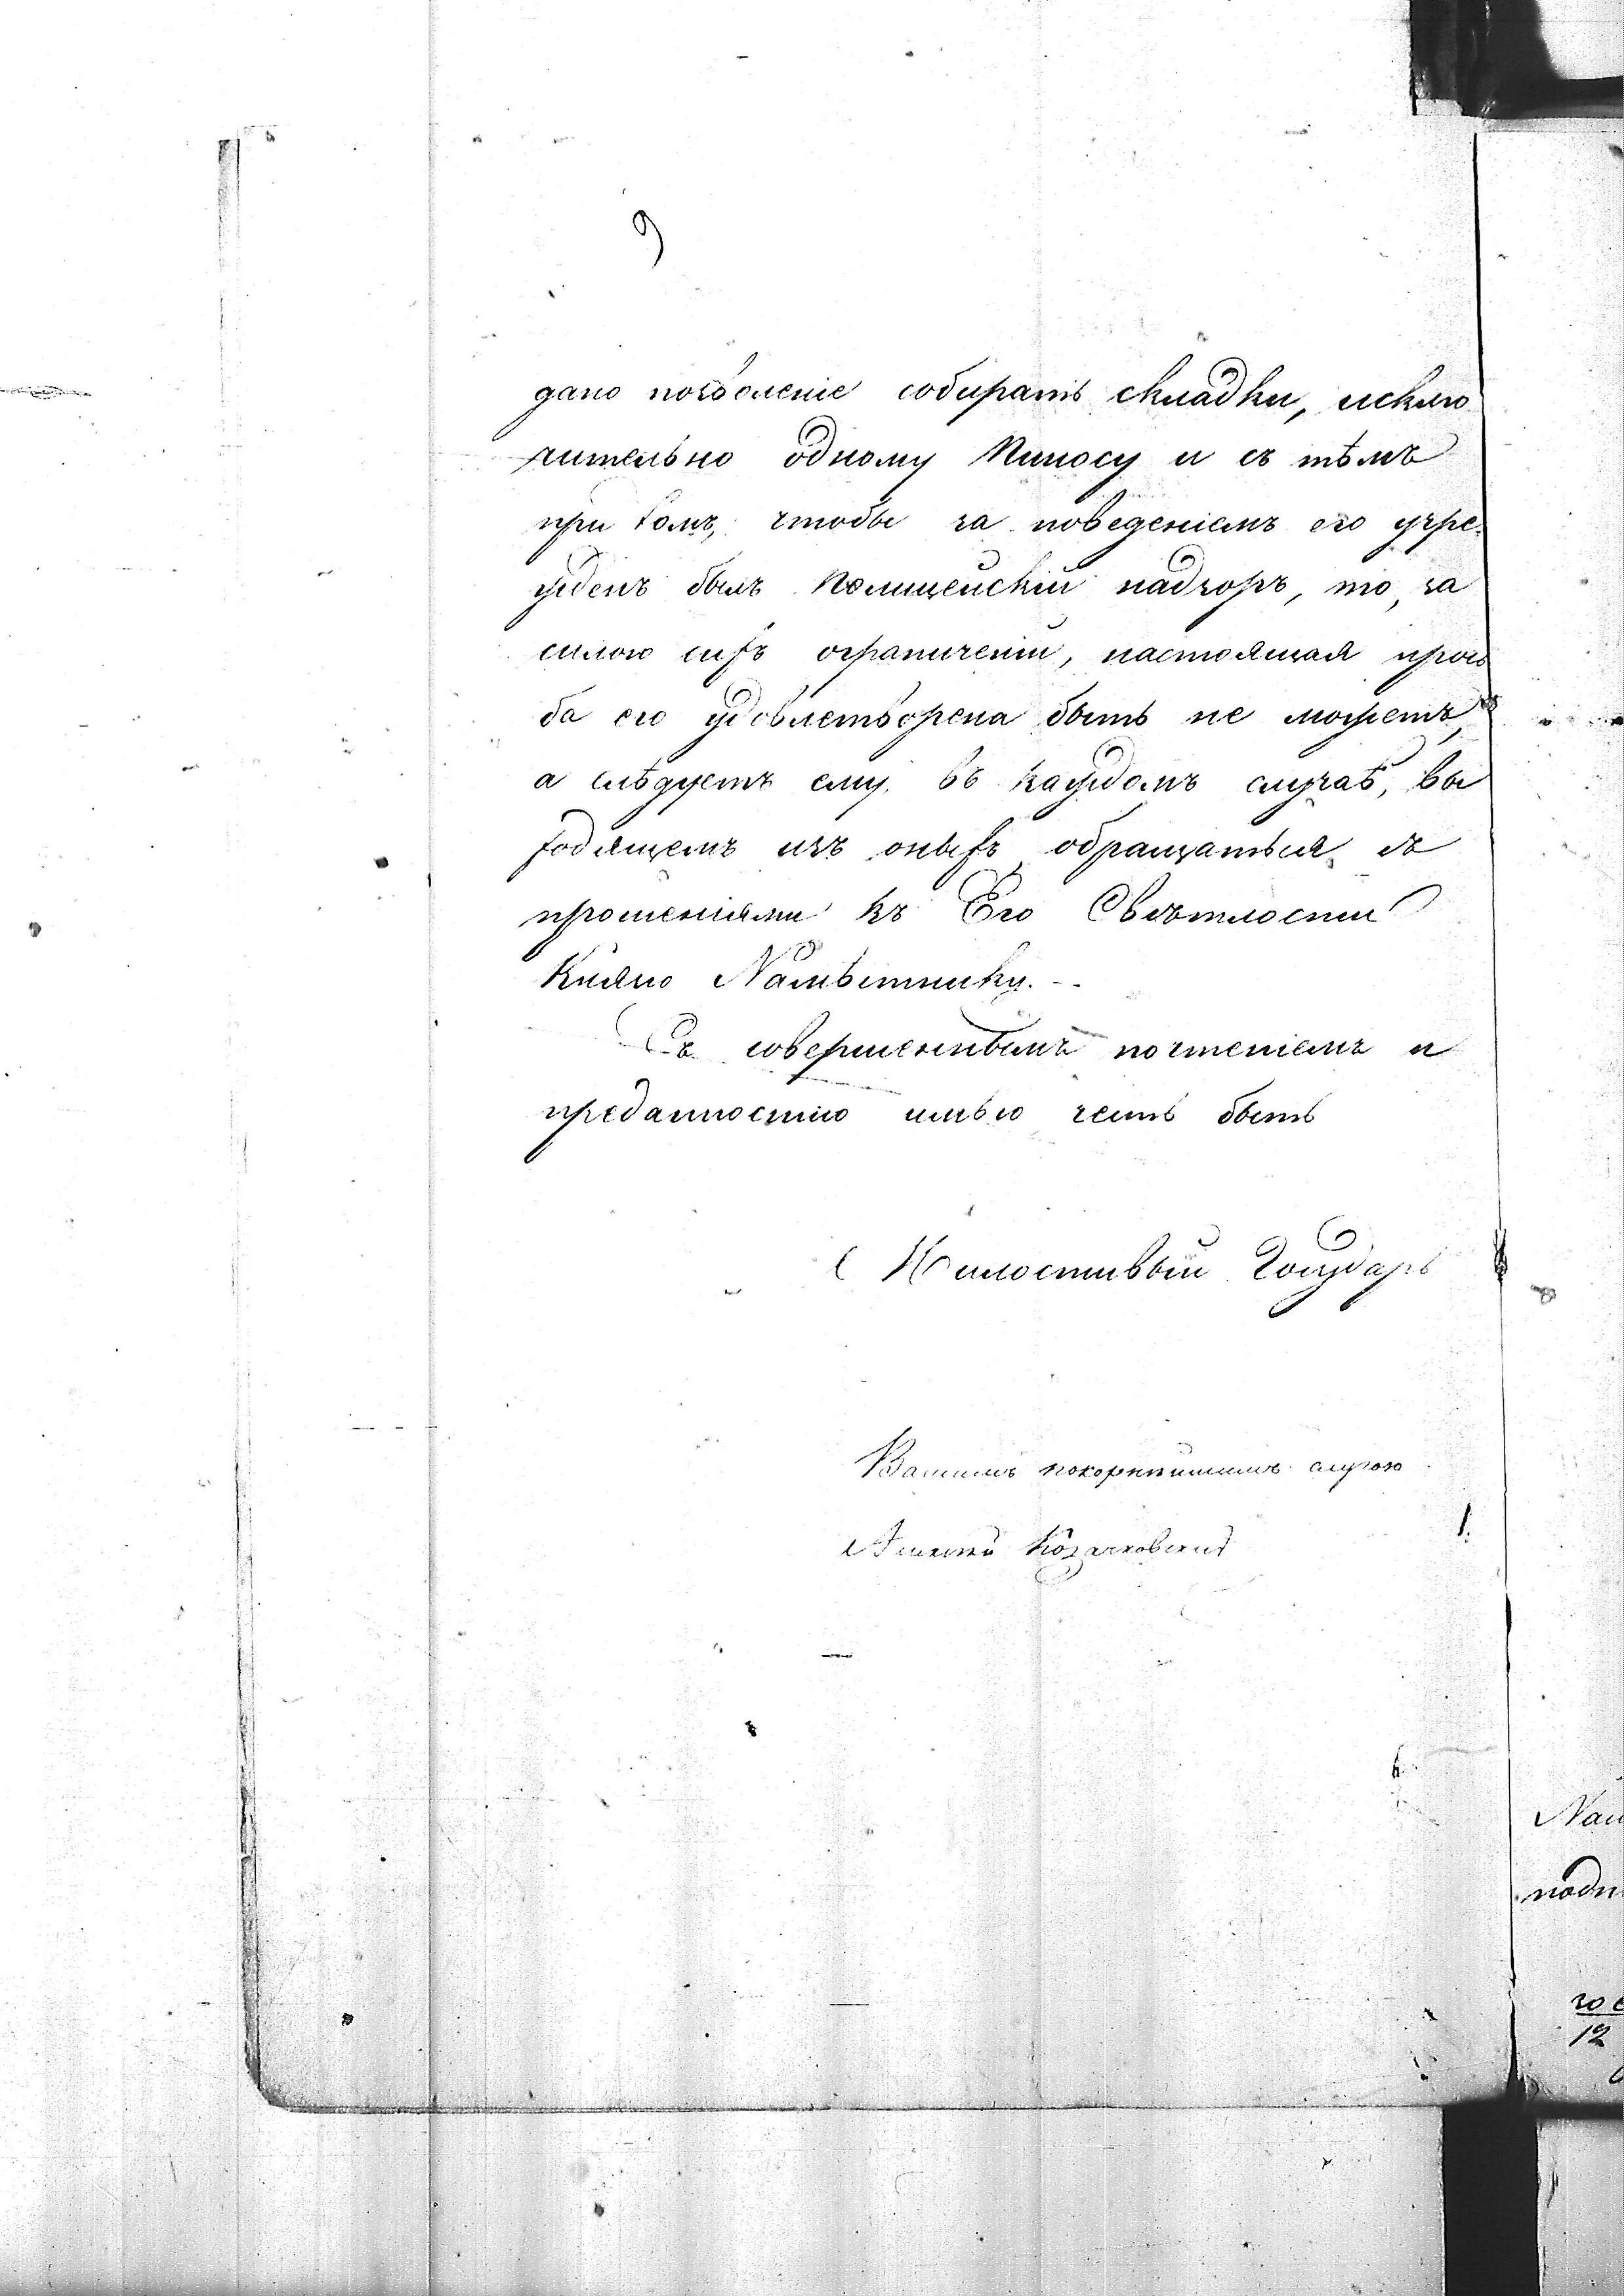 9
дано позволеніе собирать складки, исклю
чительно одному Пиносу и съ тѣмъ
при томъ, чтобы за поведеніемъ его учре-
жденъ былъ Полицейскій надзоръ, то, за
силою сихъ ограниченій, настоящая прось
ба его удовлетворена быть не можетъ,
а слѣдуетъ ему, въ каждомъ случаѣ, вы
ходящемъ изъ оныхъ обращаться съ
прошеніями къ Его Свѣтлости
Князю Намѣстнику.--
Съ совершеннымъ почтеніемъ и
преданностію имѣю честь быть
Милостивый Государь
Вашимъ покорнѣйшимъ слугою
Козачковскій
Нам
подн
12